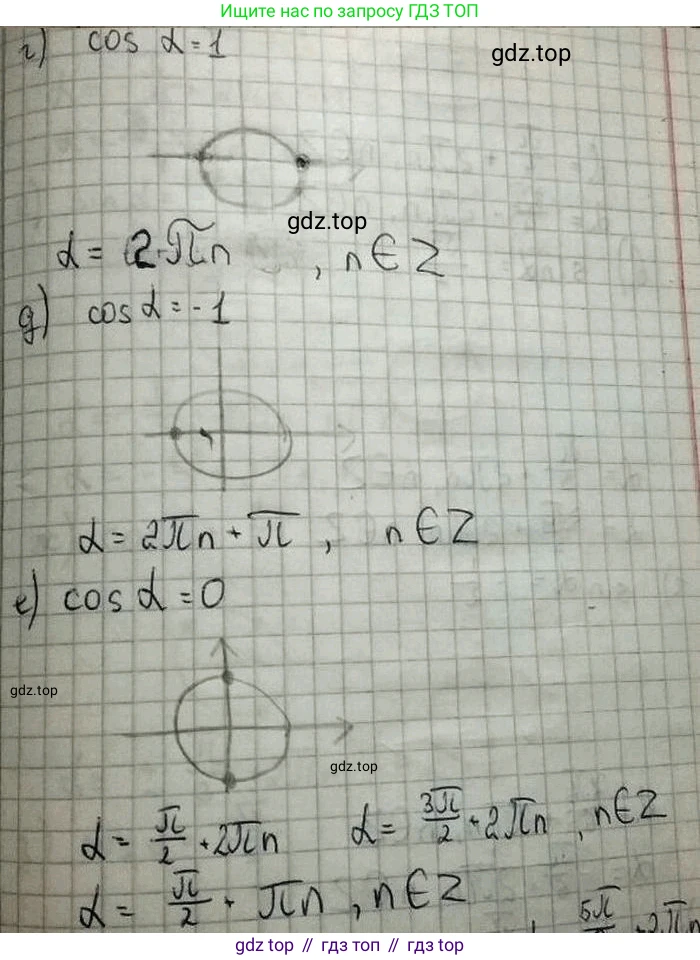 Ищите нас по запросу ГДЗ ТОП
г) cos α = 1
gdz.top
gdz.top
α = 2πn , n ∈ Z
д) cos α = -1
α = 2πn + π , n ∈ Z
е) cos α = 0
gdz.top
gdz.top
α = π/2 + 2πn α = 3π/2 + 2πn , n ∈ Z
α = π/2 + πn , n ∈ Z
gdz top // гдз топ // gdz.top // гдз.топ